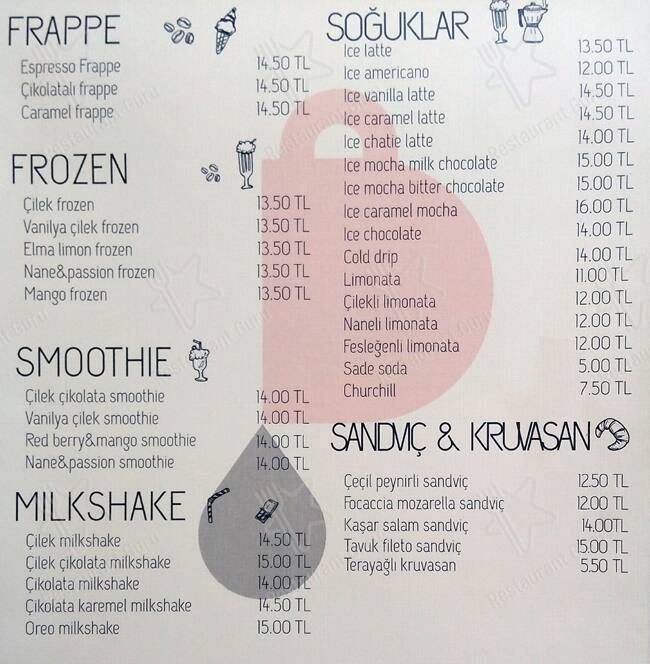 FRAPPE
Espresso Frappe 14.50 TL
Çikolatalı frappe 14.50 TL
Caramel frappe 14.50 TL
FROZEN
Çilek frozen 13.50 TL
Vanilya çilek frozen 13.50 TL
Elma limon frozen 13.50 TL
Nane&passion frozen 13.50 TL
Mango frozen 13.50 TL
SMOOTHIE
Çilek çikolata smoothie 14.00 TL
Vanilya çilek smoothie 14.00 TL
Red berry&mango smoothie 14.00 TL
Nane&passion smoothie 14.00 TL
MILKSHAKE
Çilek milkshake 14.50 TL
Çilek çikolata milkshake 15.00 TL
Çikolata milkshake 14.00 TL
Çikolata karemel milkshake 14.50 TL
Oreo milkshake 15.00 TL
SOĞUKLAR
Ice latte 13.50 TL
Ice americano 12.00 TL
Ice vanilla latte 14.50 TL
Ice caramel latte 14.50 TL
Ice chatie latte 14.00 TL
Ice mocha milk chocolate 15.00 TL
Ice mocha bitter chocolate 15.00 TL
Ice caramel mocha 16.00 TL
Ice chocolate 14.00 TL
Cold drip 14.00 TL
Limonata 11.00 TL
Çilekli limonata 12.00 TL
Naneli limonata 12.00 TL
Fesleğenli limonata 12.00 TL
Sade soda 5.00 TL
Churchill 7.50 TL
SANDVİÇ & KRUVASAN
Çeçil peynirli sandviç 12.50 TL
Focaccia mozarella sandviç 12.00 TL
Kaşar salam sandviç 14.00TL
Tavuk fileto sandviç 15.00 TL
Terayağlı kruvasan 5.50 TL
Restaurant Guru